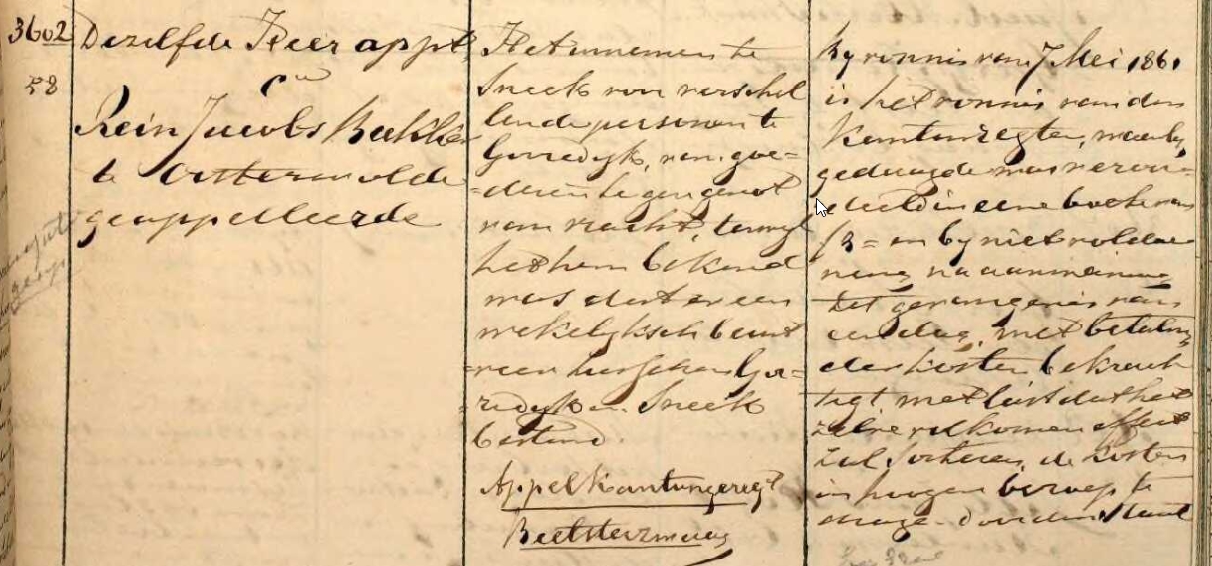 3602
58
Dezelfde Heer appt
en
Rein Jacobs Bakker
te Oosterwolde
geappelleerde
Het innemen te
Sneek van verschil
lende personen te
Gorredyk, van goe=
=deren tegen genot
van vracht, terwyl
het hem bekend
was dat er een
wekelyksch beurt
=veer tusschen Gor=
=redyk en Sneek
bestond.
Appel Kantongeregt
Beetsterzwaag
By vonnis van 7 Mei 1861
is het vonnis van den
Kantonregter, waarby
gedaagde was veroor=
deeld in eene boete van
f 3 = en by niet voldoe
ning na aanmaning
tot gevangenis van
een dag, met betaling
der kosten bekrach
tigt met last dat het
zelve volkomen effect
zal sorteren, de kosten
in hooger beroep te
dragen door den Staat